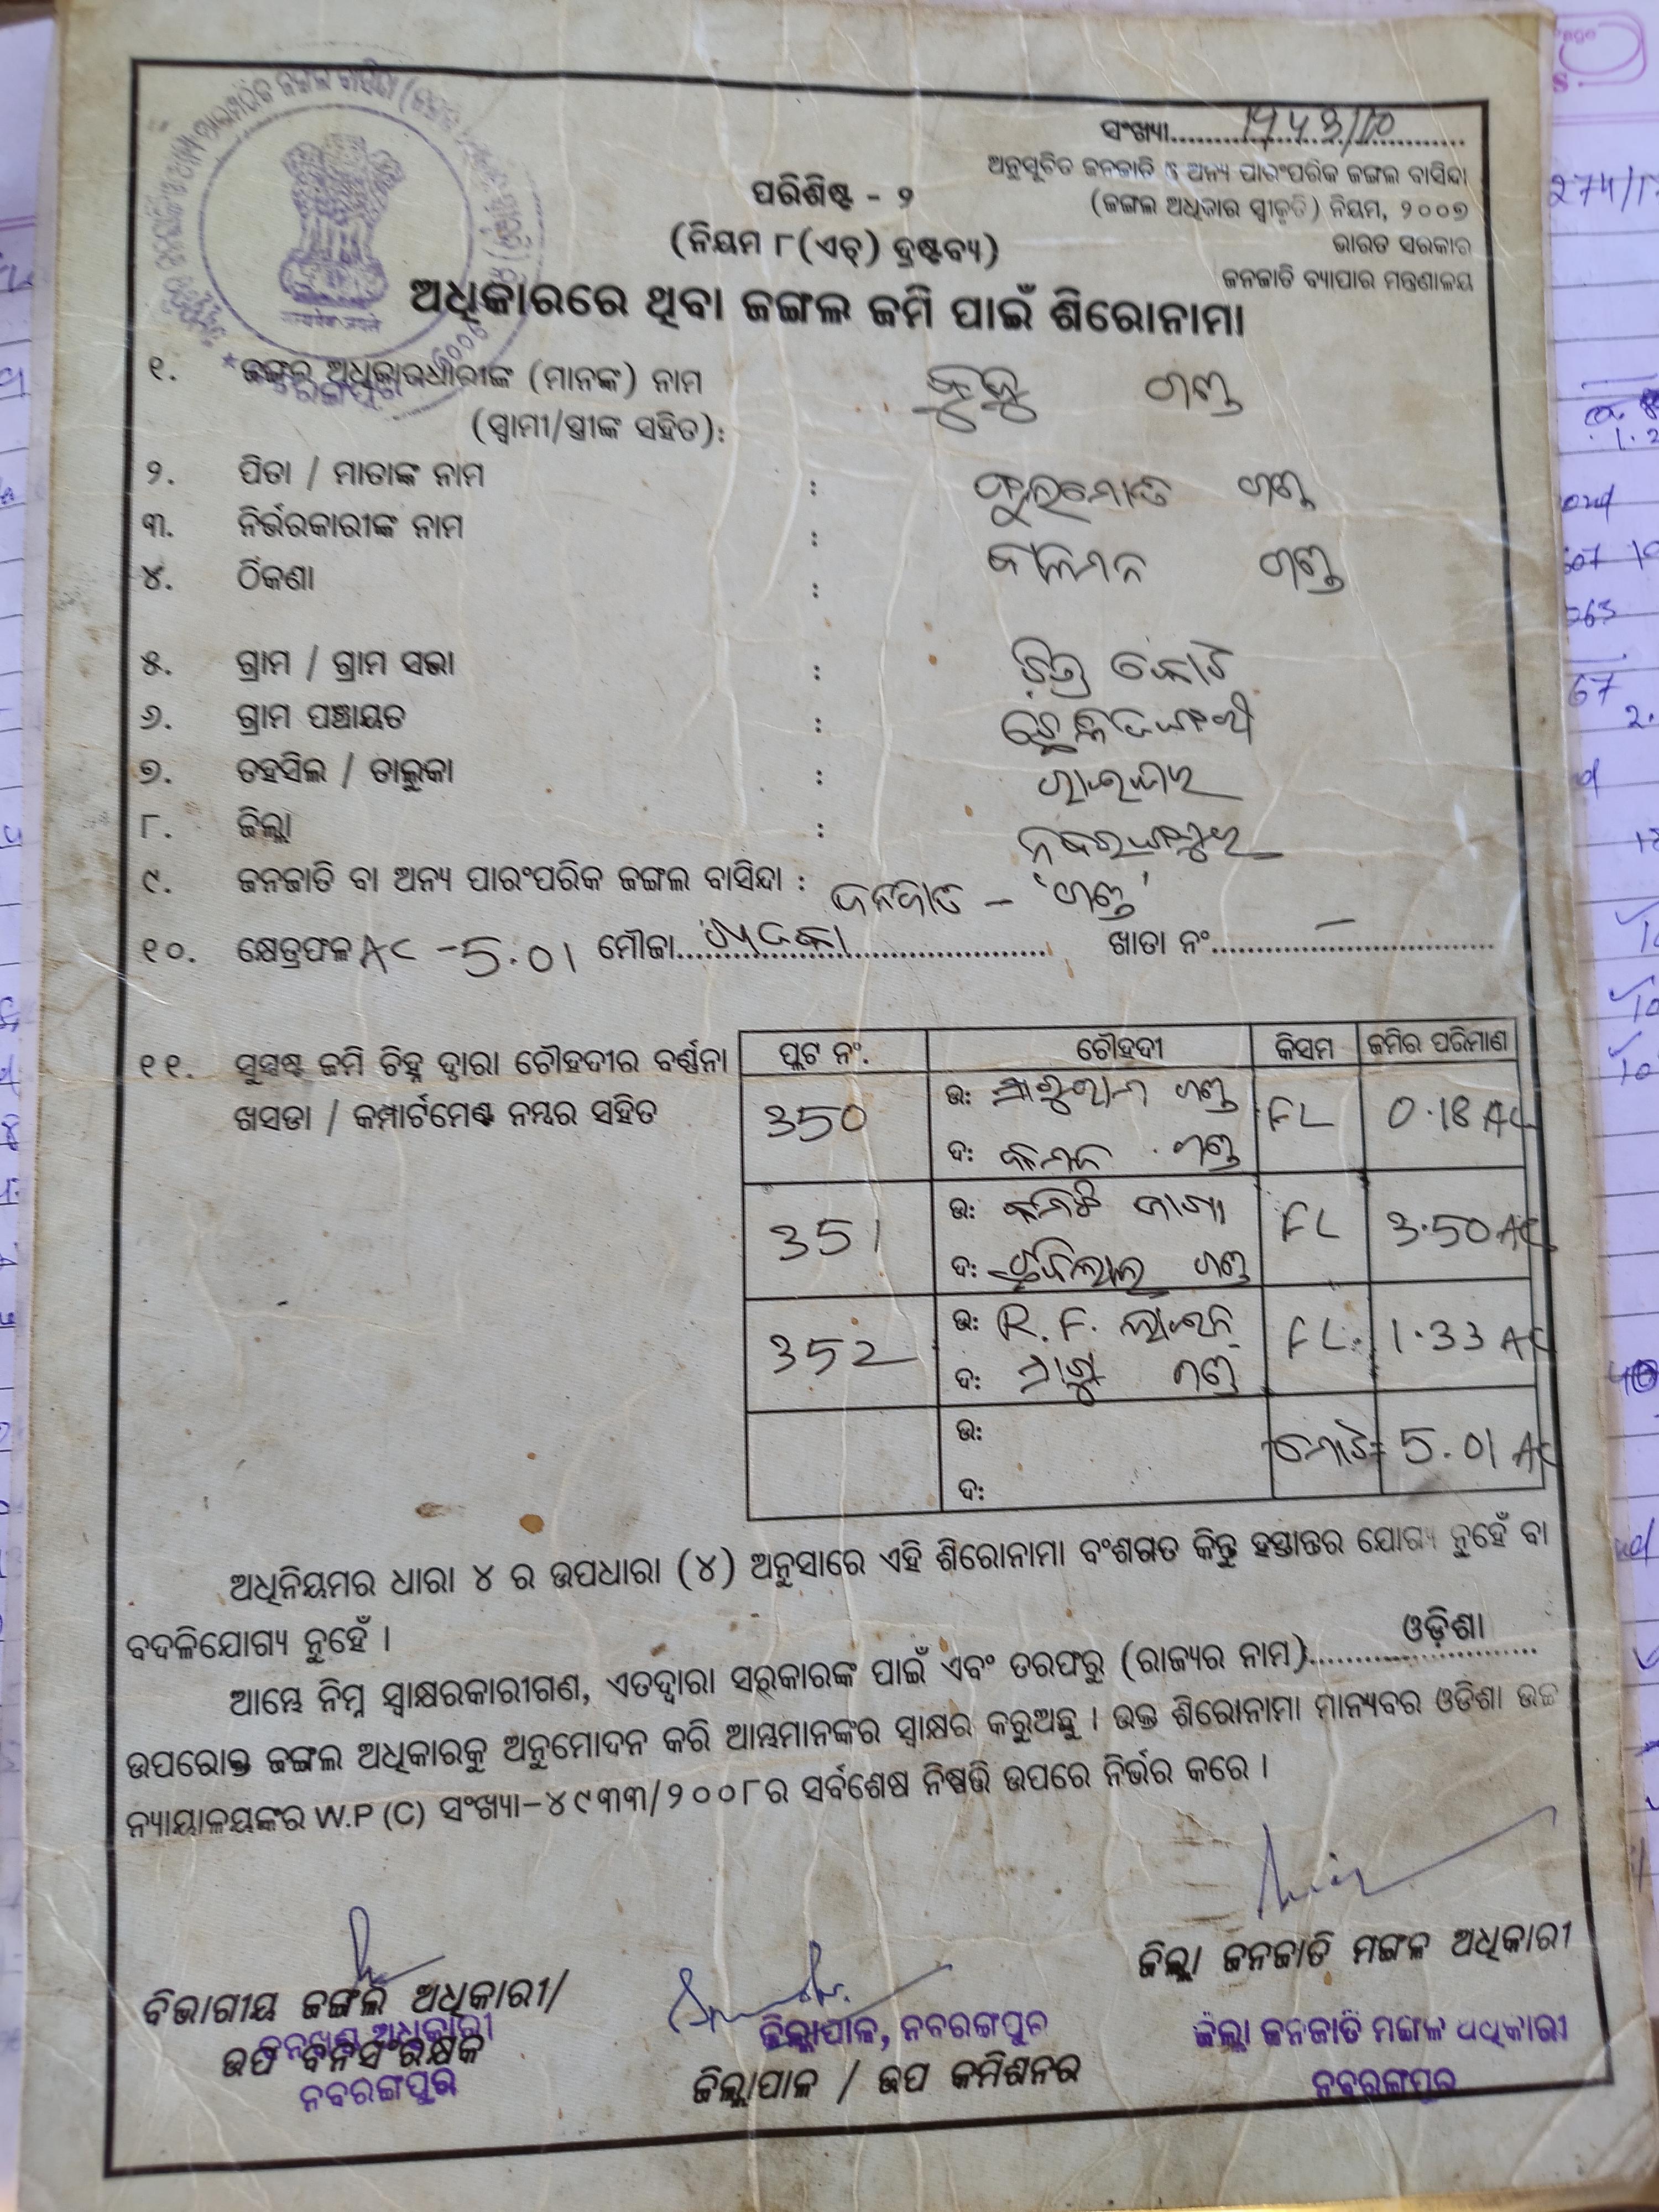 ସଂଖ୍ୟା.............................
ଅନୁସୂଚିତ ଜନଜାତି ଓ ଅନ୍ୟ ପାରଂପରିକ ଜଙ୍ଗଲ ବାସିନ୍ଦା
(ଜଙ୍ଗଲ ଅଧିକାର ସ୍ୱୀକୃତି) ନିୟମ, ୨୦୦୭
ଭାରତ ସରକାର
ଜନଜାତି ବ୍ୟାପାର ମନ୍ତ୍ରଣାଳୟ
ପରିଶିଷ୍ଟ - ୨
(ନିୟମ ୮(ଏଚ୍) ଦ୍ରଷ୍ଟବ୍ୟ)
ଅଧିକାରରେ ଥିବା ଜଙ୍ଗଲ ଜମି ପାଇଁ ଶିରୋନାମା
୧. ଜଙ୍ଗଲ ଅଧିକାରଧାରୀଙ୍କ (ମାନଙ୍କ) ନାମ ଗଣ୍ଡ
(ସ୍ୱାମୀ/ସ୍ତ୍ରୀଙ୍କ ସହିତ):
୨. ପିତା / ମାତାଙ୍କ ନାମ : ଗଣ୍ଡ
୩. ନିର୍ଭରକାରୀଙ୍କ ନାମ : ଗଣ୍ଡ
୪. ଠିକଣା :
୫. ଗ୍ରାମ / ଗ୍ରାମ ସଭା :
୬. ଗ୍ରାମ ପଞ୍ଚାୟତ :
୭. ତହସିଲ / ତାଲୁକା : ରାଇଘର
୮. ଜିଲ୍ଲା : ନବରଙ୍ଗପୁର
୯. ଜନଜାତି ବା ଅନ୍ୟ ପାରଂପରିକ ଜଙ୍ଗଲ ବାସିନ୍ଦା : ଜନଜାତି – 'ଗଣ୍ଡ'
୧୦. କ୍ଷେତ୍ରଫଳ AC - 5.01 ମୌଜା.................................... ଖାତା ନଂ........–.................
୧୧. ସୁସ୍ପଷ୍ଟ ଜମି ଚିହ୍ନ ଦ୍ୱାରା ଚୌହଦୀର ବର୍ଣ୍ଣନା
ଖସଡା / କମ୍ପାର୍ଟମେଣ୍ଟ ନମ୍ବର ସହିତ
ପ୍ଲଟ ନଂ. ଚୌହଦୀ କିସମ ଜମିର ପରିମାଣ
350 ଉ: ଗଣ୍ଡ FL 0.18 AC
ଦ: ଗଣ୍ଡ
351 ଉ: FL 3.50 AC
ଦ: ଗଣ୍ଡ
352 ଉ: R.F. ଲାଇନ FL 1.33 AC
ଦ: ଗଣ୍ଡ
ଉ: ମୋଟ= 5.01 AC
ଦ:
ଅଧିନିୟମର ଧାରା ୪ ର ଉପଧାରା (୪) ଅନୁସାରେ ଏହି ଶିରୋନାମା ବଂଶଗତ କିନ୍ତୁ ହସ୍ତାନ୍ତର ଯୋଗ୍ୟ ନୁହେଁ ବା
ବଦଳିଯୋଗ୍ୟ ନୁହେଁ ।
ଆମ୍ଭେ ନିମ୍ନ ସ୍ୱାକ୍ଷରକାରୀଗଣ, ଏତଦ୍ୱାରା ସରକାରଙ୍କ ପାଇଁ ଏବଂ ତରଫରୁ (ରାଜ୍ୟର ନାମ).........ଓଡ଼ିଶା.........
ଉପରୋକ୍ତ ଜଙ୍ଗଲ ଅଧିକାରକୁ ଅନୁମୋଦନ କରି ଆମ୍ଭମାନଙ୍କର ସ୍ୱାକ୍ଷର କରୁଅଛୁ । ଉକ୍ତ ଶିରୋନାମା ମାନ୍ୟବର ଓଡିଶା ଉଚ୍ଚ
ନ୍ୟାୟାଳୟଙ୍କର W.P (C) ସଂଖ୍ୟା-୪୯୩୩/୨୦୦୮ର ସର୍ବଶେଷ ନିଷ୍ପତ୍ତି ଉପରେ ନିର୍ଭର କରେ ।
ବିଭାଗୀୟ ଜଙ୍ଗଲ ଅଧିକାରୀ/
ବନଖଣ୍ଡ ଅଧିକାରୀ
ଉପ ବନସଂରକ୍ଷକ
ନବରଙ୍ଗପୁର
ଜିଲ୍ଲାପାଳ, ନବରଙ୍ଗପୁର
ଜିଲ୍ଲାପାଳ / ଉପ କମିଶନର
ଜିଲ୍ଲା ଜନଜାତି ମଙ୍ଗଳ ଅଧିକାରୀ
ଜିଲ୍ଲା ଜନଜାତି ମଙ୍ଗଳ ଅଧିକାରୀ
ନବରଙ୍ଗପୁର